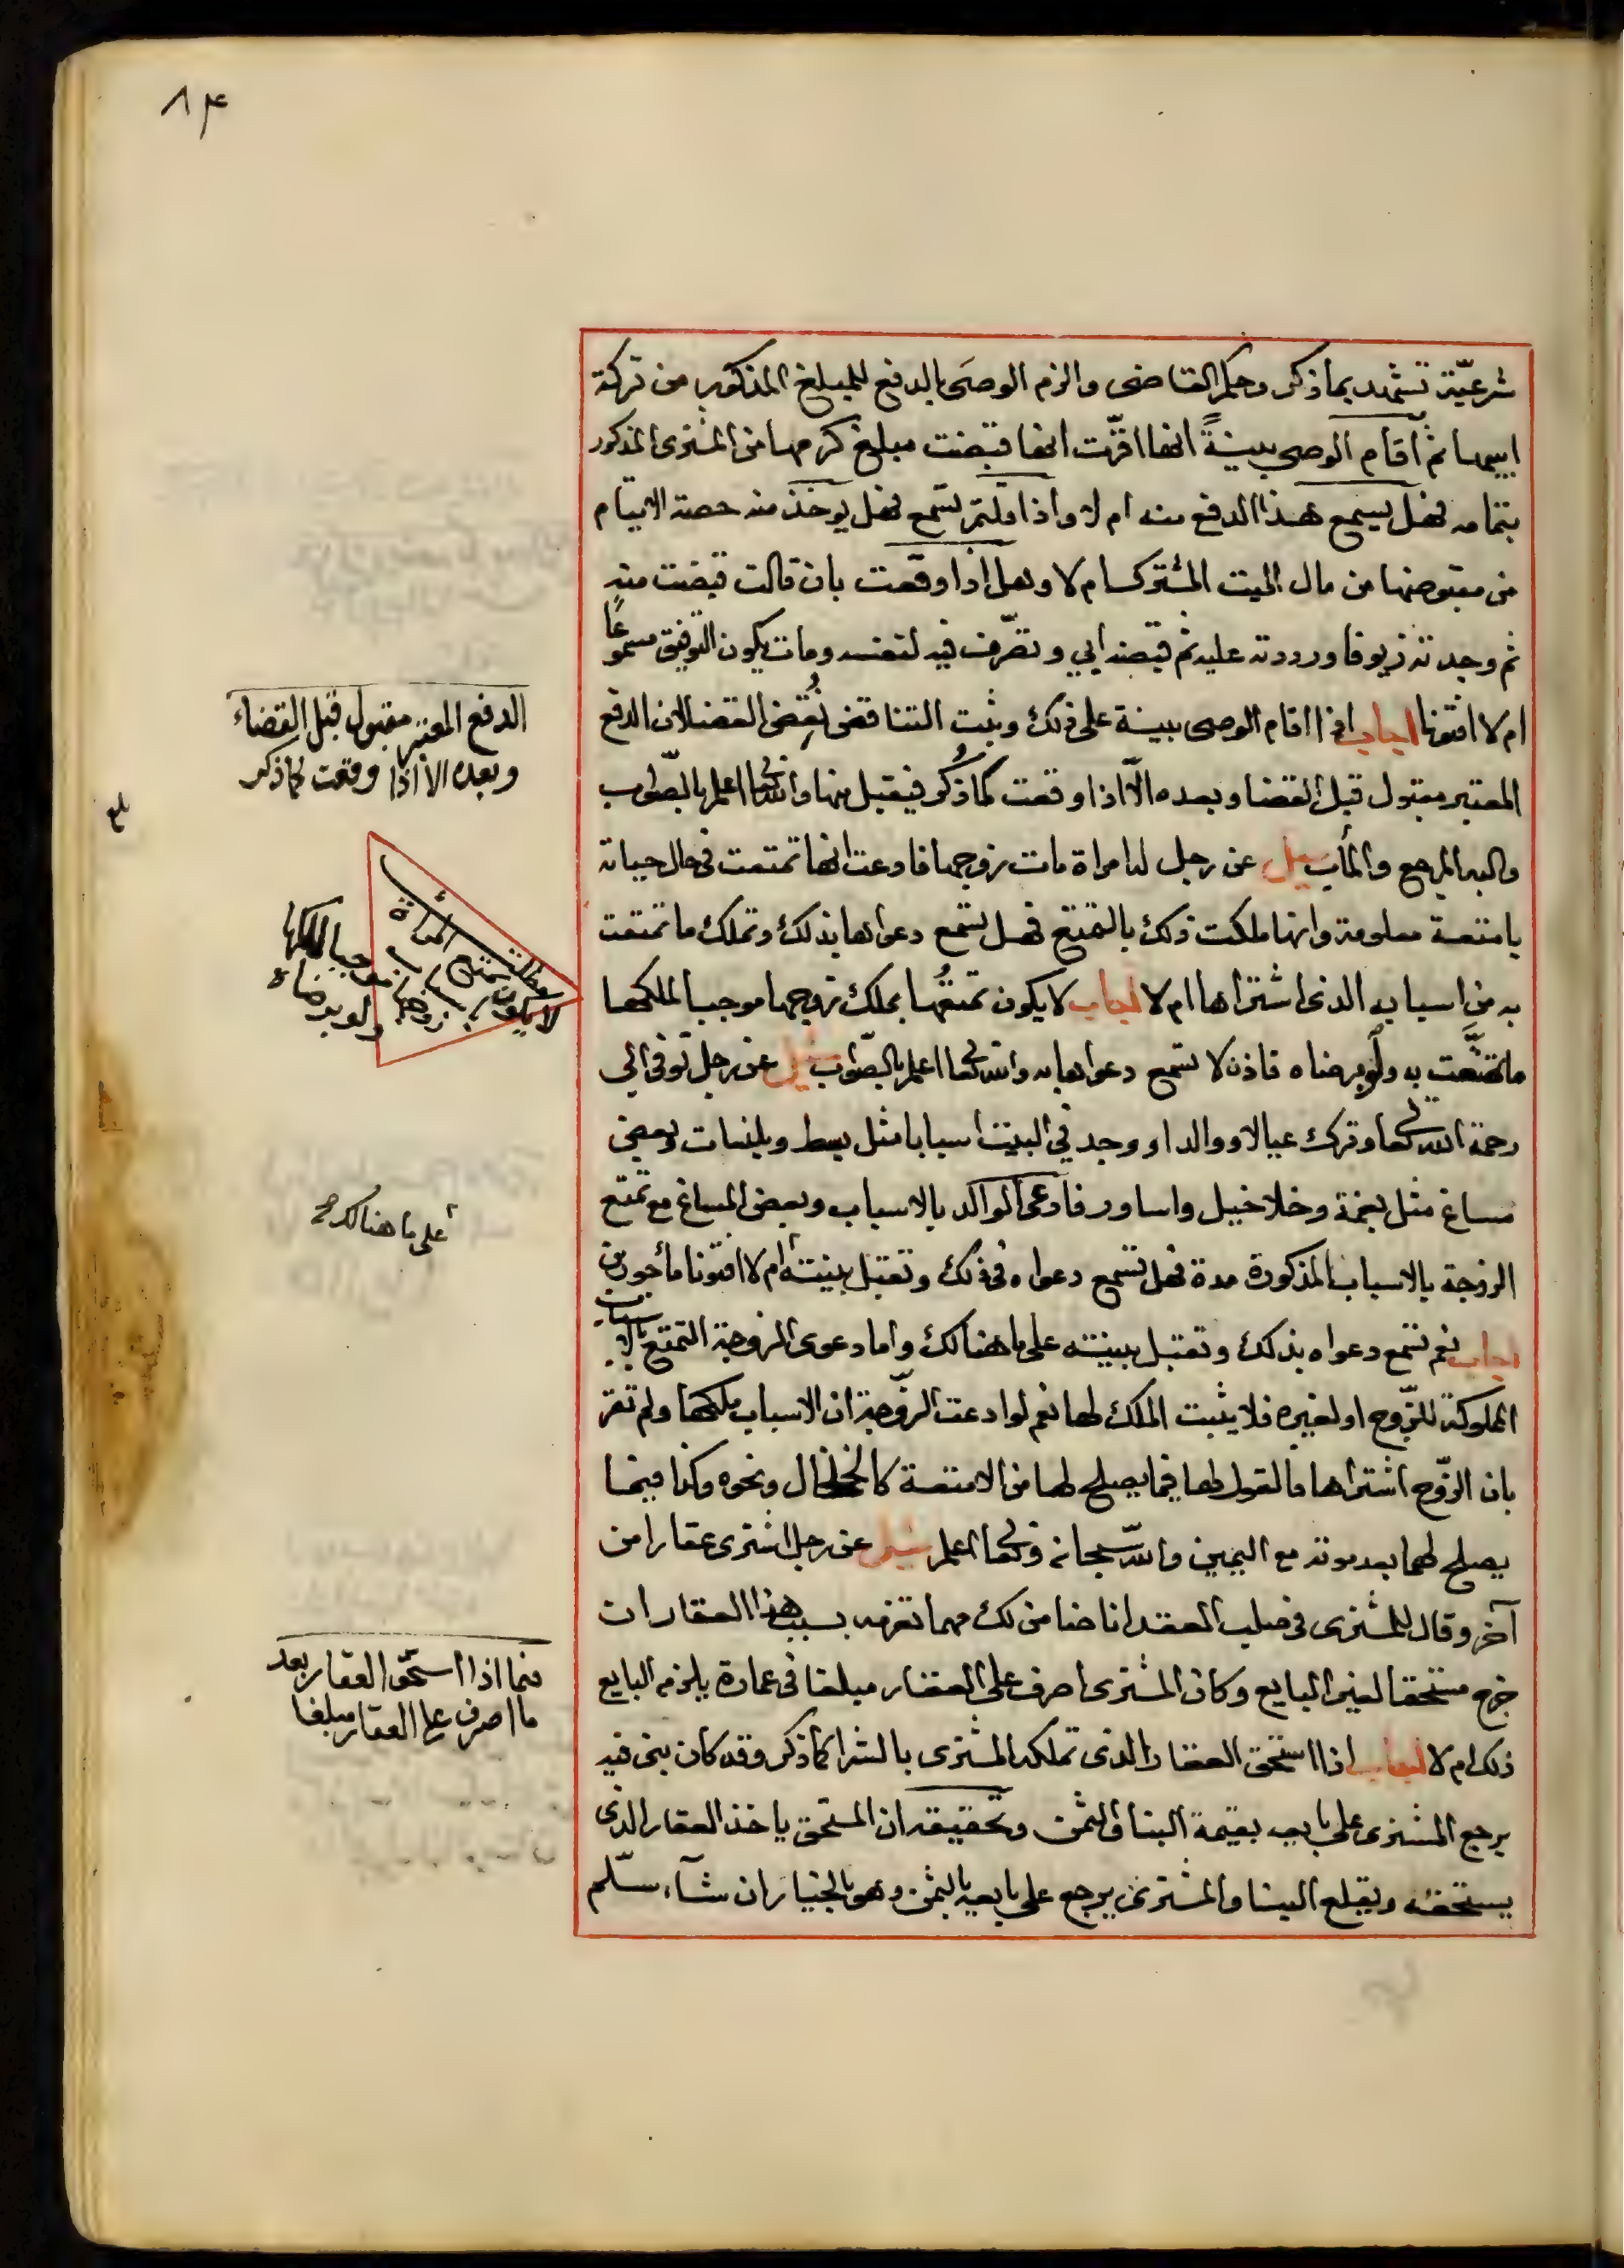 ٨٤
شرعيّة تشهد بما ذكر وحكم القاضى والزم الوصى بالدفع للمبلغ المذكور من تركة
ابيها ثم اقام الوصى بينةً انها اقرّت انها قبضت مبلغ كرمها من المشترى المذكور
بتمامه فهل يسمع هذا الدفع منه ام لا واذا قلتم تسمع فهل يوخذ منه حصة الايتام
من مقبوضها من مال الميت المشترك ام لا وهل اذا وفقت بان قالت قبضت منه
ثم وجدته زيوفا ورددته عليه ثم قبضه ابي وتصّرف فيه لنفسه ومات يكون التوفيق مسموعًا
ام لا افتونا اجاب اذا اقام الوصى ببينة على ذلك وثبت التناقض نُقِض القضا لان الدفع
المعتبر مقبول قبل القضا وبعده الّا اذا وفقت كما ذُكر فيقبل منها والله تعالى اعلم بالصّواب
واليه المرجع والمأب سيل عن رجل له امراة مات زوجها فادعت انها تمتعت في حال حياته
بامتعة معلومة وانها ملكت ذلك بالتمتع فهل تسمع دعواها بذلك وتملك ما تمتعت
به من اسبابه الذى اشتراها ام لا اجاب لا يكون تمتعُها بملك زوجها موجبا لملكها
ما تمتّعت به ولو برضاه فاذن لا تسمع دعواها به والله تعالى اعلم بالصّواب سيل عن رجل توفى الى
رحمة الله تعالى وترك عيالا ووالدا ووجد في البيت اسبابا مثل بسط وبلنسات وبعض
مساغ مثل بغمة وخلاخيل واساور فادعى الوالد بالاسباب وبعض المساغ مع تمتع
الزوجة بالاسباب المذكورة مدة فهل تسمع دعواه في ذلك وتقبل بينته ام لا افتونا مأجورين
اجاب نعم تسمع دعواه بذلك وتقبل ببينته على ما هنالك واما دعوى الزوجة التمتع بالاسباب
المملوكة للزّوج او لغيره فلا يثبت الملك لها نعم لو ادعت الزّوجة ان الاسباب ملكها ولم تقر
بان الزّوج اشتراها فالقول لها فيما يصلح لها من الامتعة كالخلخال ونحوه وكذا فيما
يصلح لهما بعد موته مع اليمين والله سبحانه وتعالى اعلم سيل عن رجل اشترى عقارا من
آخر وقال للمشترى في صلب العقد انا ضامن لك مهما تغرمه بسبب هذا العقار ان
خرج مستحقا لغير البايع وكان المشترى اصرف على العقار مبلغا في عمارة يلزم البايع
ذلك ام لا اجاب اذا استحق العقار الذى تملكه المشترى بالشرا كما ذكر وقد كان بنى فيه
يرجع المشترى على بايعه بقيمة البنا والثمن وتحقيقه ان المستحق ياخذ العقار الذى
يستحقه ويقلع البنا والمشترى يرجع على بايعه بالثمن وهو بالخيار ان شآء سلّم
الدفع المعتبر مقبول قبل القضاء
وبعده الا اذا وفقت كما ذكر
بلغ
مطلب تمتع المرأة
باسباب زوجها
لا يكون موجبا لملكها
ولو برضاه
على ما هنالك صح
فيما اذا استحق العقار بعد
ما اصرف على العقار مبلغا